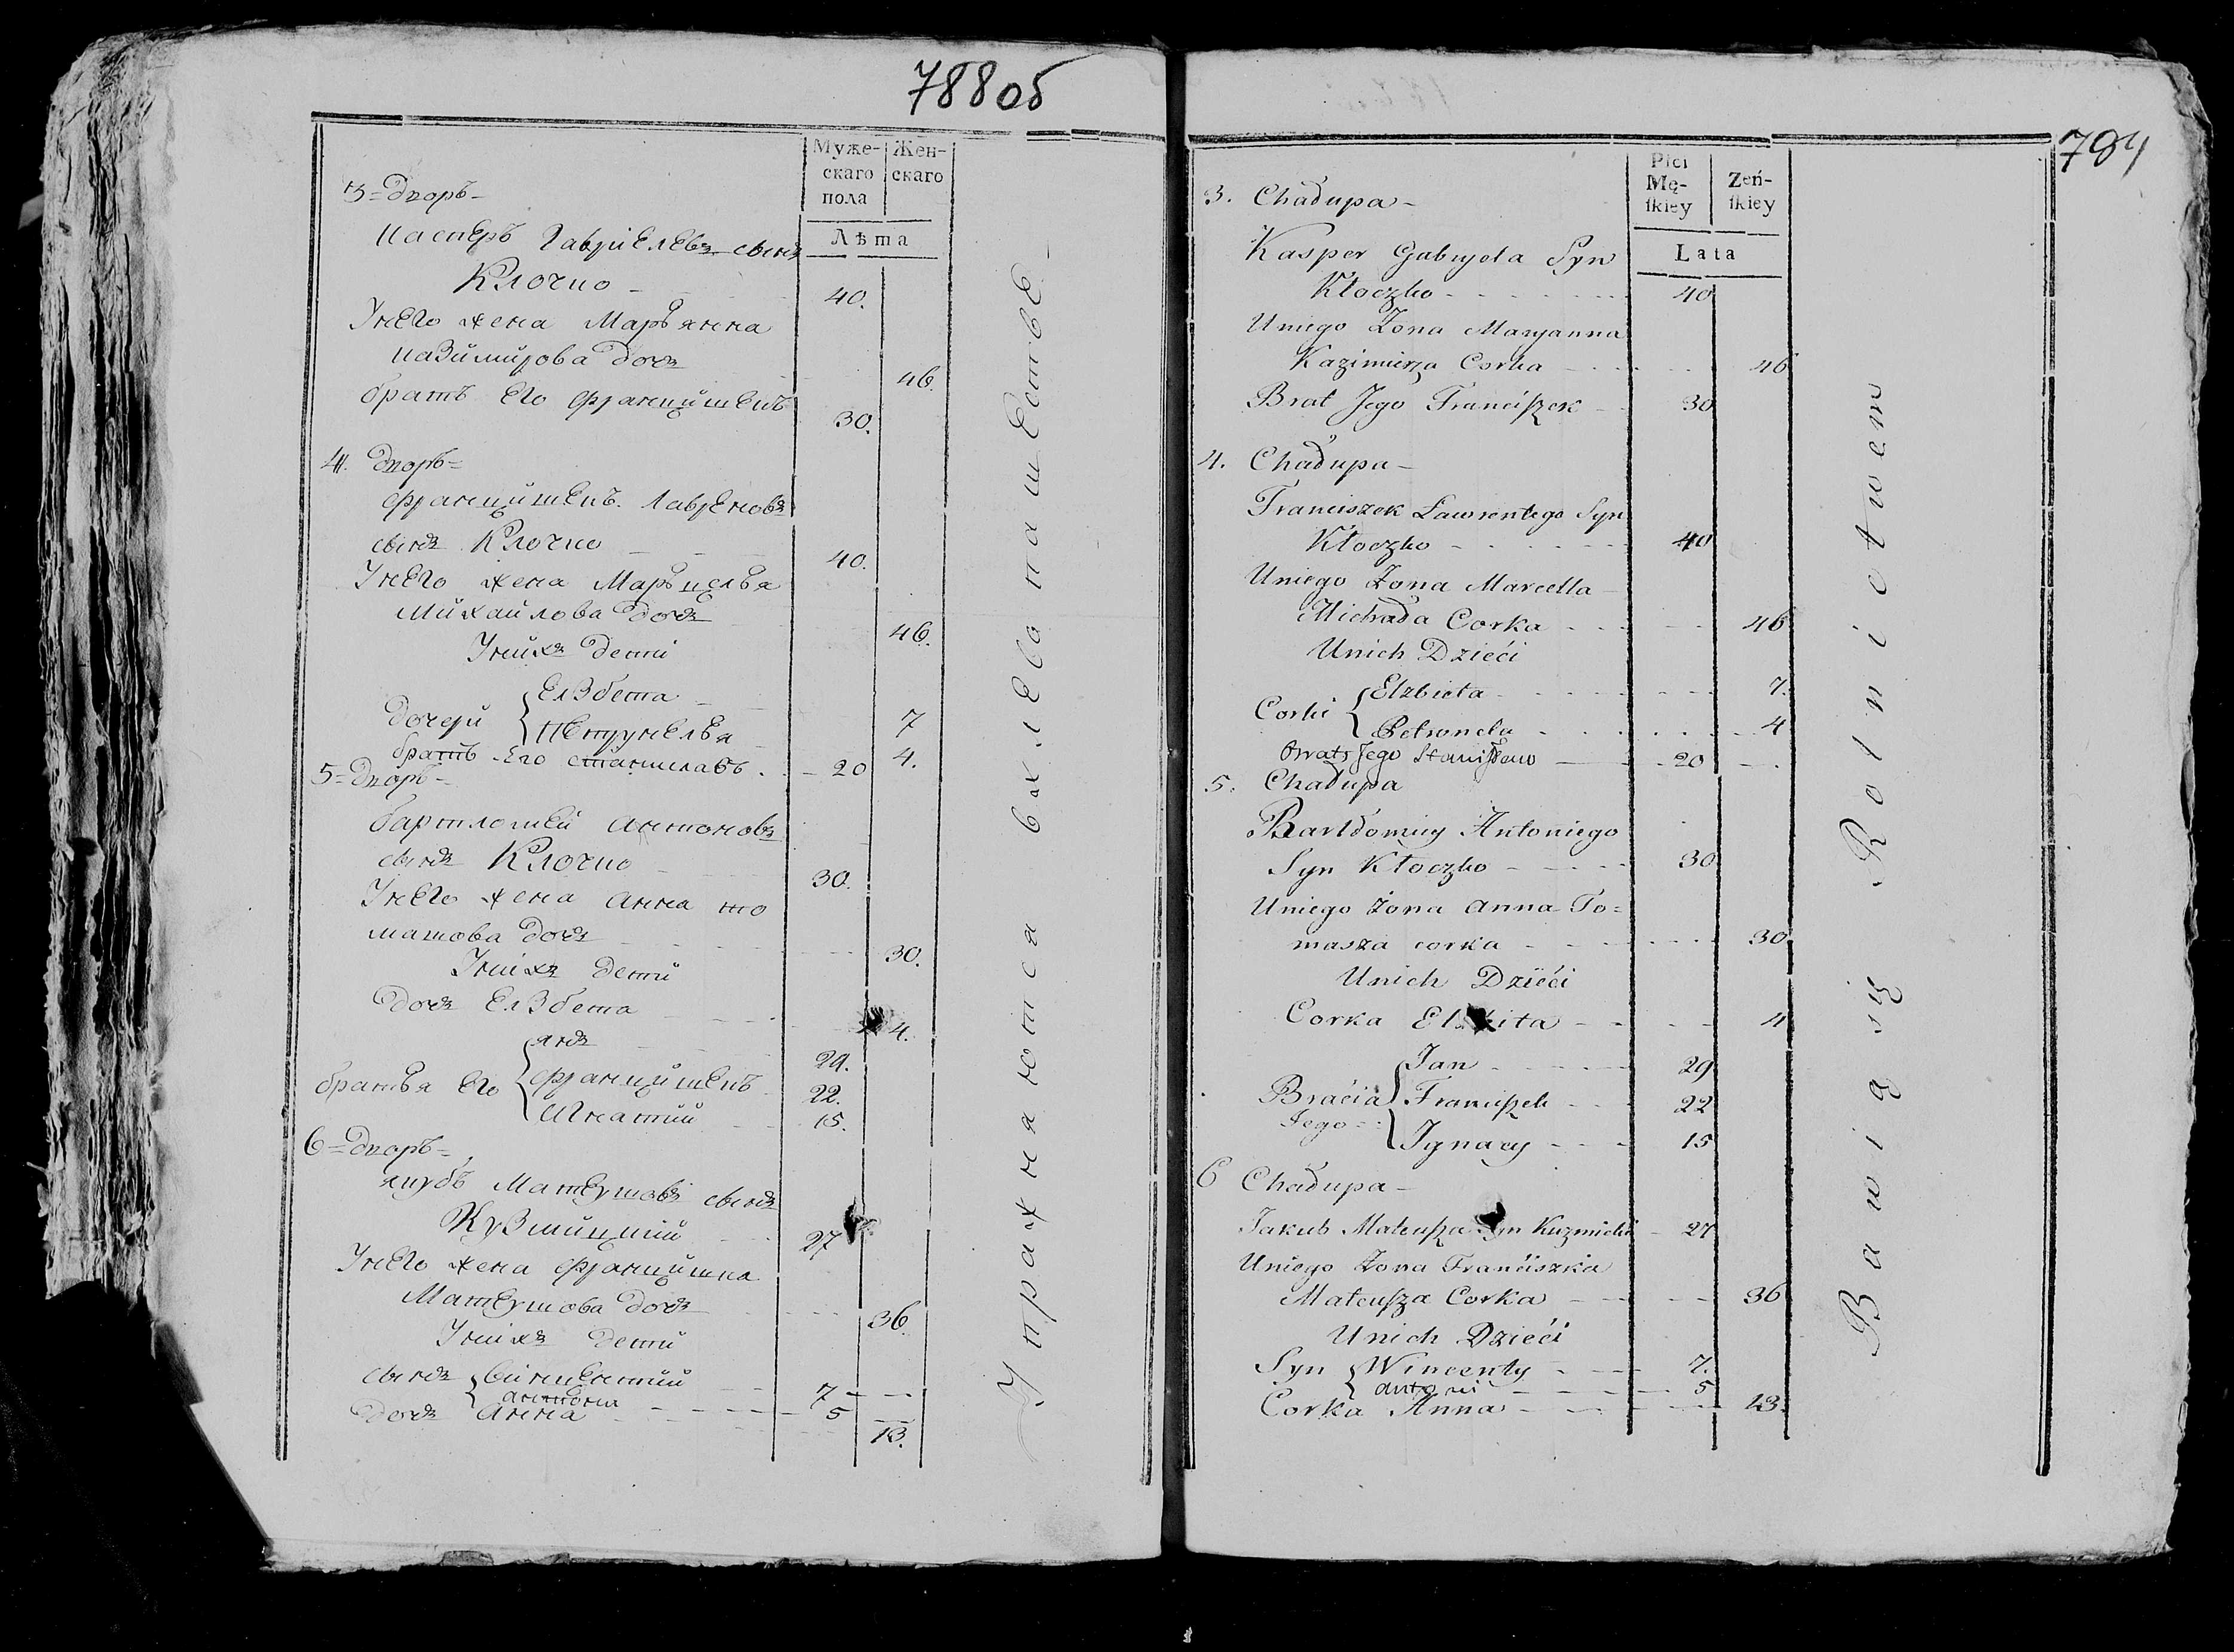 788об
Муже-
скаго
пола
Жен-
скаго
Лѣта
3=Дворъ-
Касперъ Гавріелевъ сынъ
Клочко 40.
У него жена Марьянна
Казимирова дочь 46.
братъ его Францишекъ 30.
4. Дворъ=
Францишекъ Лавреновъ
сынъ Клочко 40.
У него жена Марцелья
Михайлова дочь 46.
У нихъ дети
дочери Елзбета 7
Петрунелья 4.
братъ Его Станиславъ 20
5=Дворъ-
Бартломей Антоновъ
сынъ Клочко 30.
У него жена Анна То
машова дочь 30.
У нихъ дети
дочь Елзбета 4.
братья его Янъ 29.
Францишекъ 22.
Игнатий 15.
6=Дворъ=
Якубъ Матеушовъ сынъ
Кузмицкий 27
У него жена Францишка
Матеушова дочь 36.
У нихъ дети
сынъ Винцентий 7
Антони 5
дочь Анна 13.
Упражняются в хлебопашестве
789
Płci
Mę-
ſkiey
Żeń-
ſkiey
Lata
3. Chałupa-
Kasper Gabryela Syn
Kłoczko 40
Uniego Żona Maryanna
Kazimierza Corka 46
Brat Jego Franciſzek 30
4. Chałupa-
Franciszek Lawrentego Syn
Kłoczko 40
Uniego Żona Marcella
Michała Corka 46
Unich Dzieći
Corki Elzbieta 7.
Petronela 4
Brat Jego Staniſław 20
5. Chałupa
Bartłomiey Antoniego
Syn Kłoczko 30
Uniego Żona Anna To=
masza corka 30
Unich Dzieći
Corka Elzbita 4
Braćia Jego Jan 29
Franciſzek 22
Ignacy 15
6 Chałupa-
Jakub Mateuſza Syn Kuzmicki 27
Uniego Żona Franciszka
Mateuſza Corka 36
Unich Dzieći
Syn Wincenty 7.
Antoni 5
Corka Anna 13.
Bawią się Rolnictwem